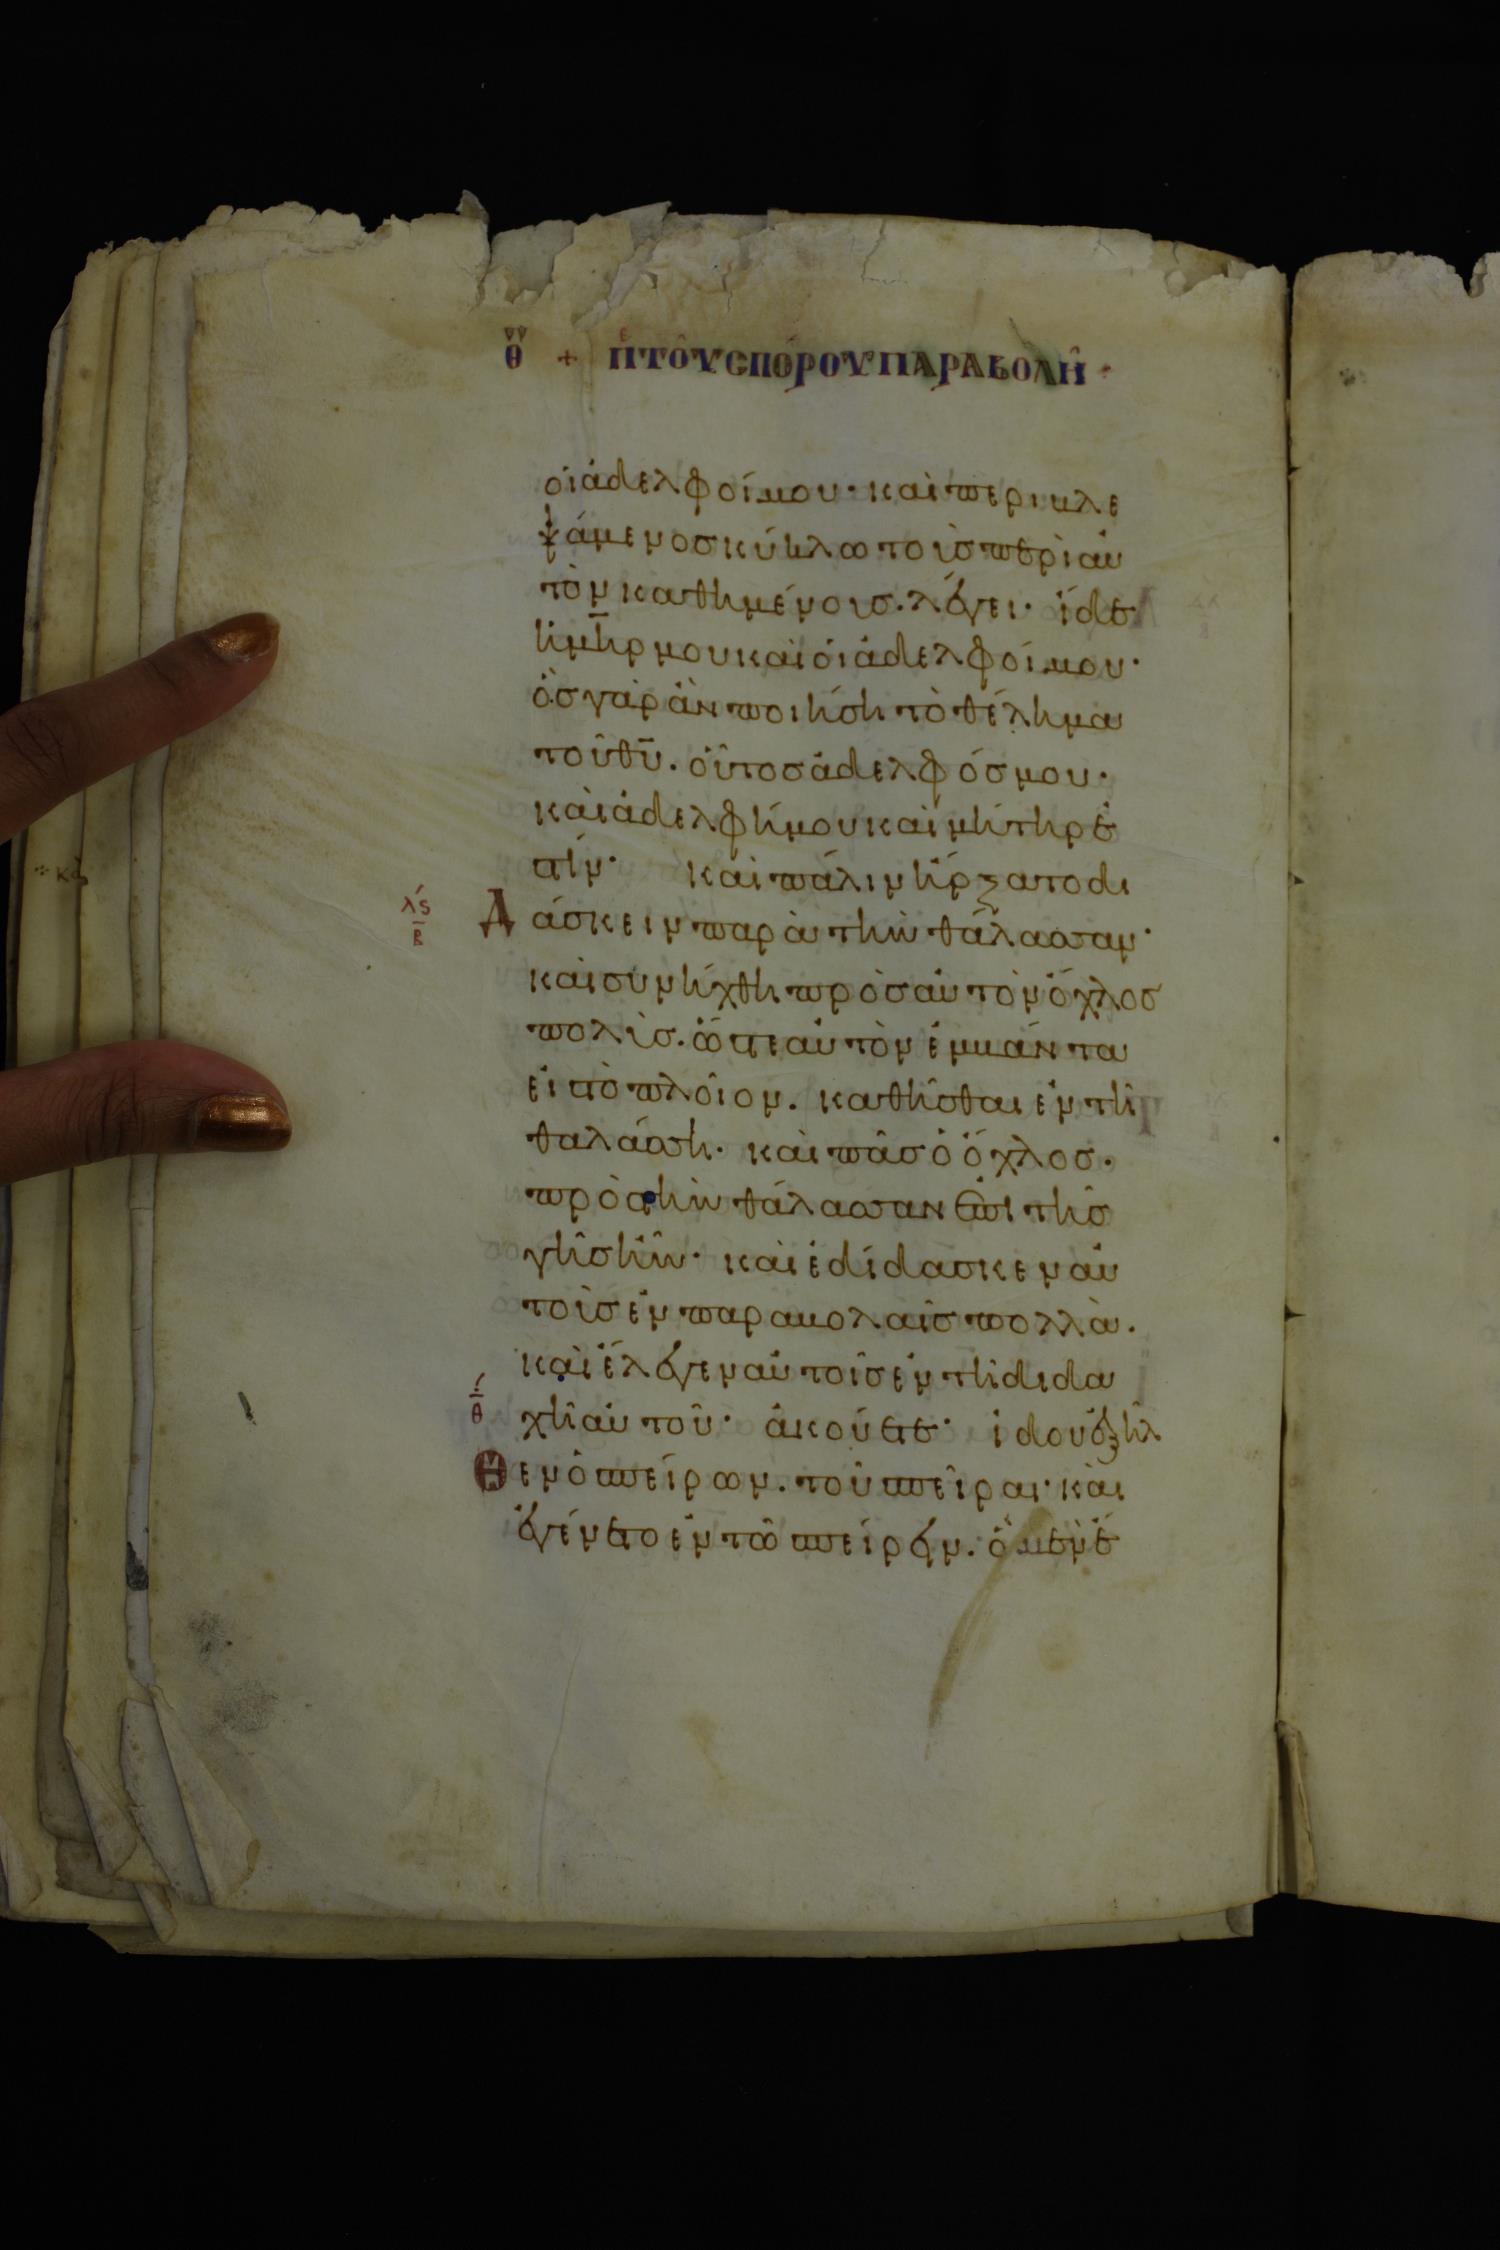 θ + π τοῦ σπόρου παραβολῆ
οἱ ἀδελφοί μου· καὶ περιβλε
ψάμενος κύκλω τοὺς περὶ αὐ
τὸν καθημένους. λέγει· ἴδε
ἡ μηρ μου καὶ οἱ ἀδελφοί μου·
ὃς γὰρ ἂν ποιήση τὸ θέλημα
τοῦ θυ. οὗτος ἀδελφός μου·
καὶ ἀδελφή μου καὶ μήτηρ ἐ
στίν· καὶ πάλιν ἤρξατο δι
λς
β
Δ άσκειν παρὰ τὴν θάλασσαν·
καὶ συνήχθη πρὸς αὐτὸν ὄχλος
πολύς. ὥστε αὐτὸν ἐμβάντα
εἰς τὸ πλοῖον. καθῆσθαι ἐν τῆ
θαλάσση· καὶ πᾶς ὁ ὄχλος.
πρὸς τὴν θάλασσαν ἐπὶ τῆς
γῆς ἦν· καὶ ἐδίδασκεν αὐ
τοὺς ἐν παραβολαῖς πολλὰ.
καὶ ἔλεγεν αὐτοῖς ἐν τῆ διδα
θ
χῆ αὐτοῦ· ἀκούετε· ἰδοὺ ἐξῆλ
Θ εν ὁ σπείρων. τοῦ σπεῖραι· καὶ
ἐγένετο ἐν τῶ σπείρειν. ὃ μὲν ἔ